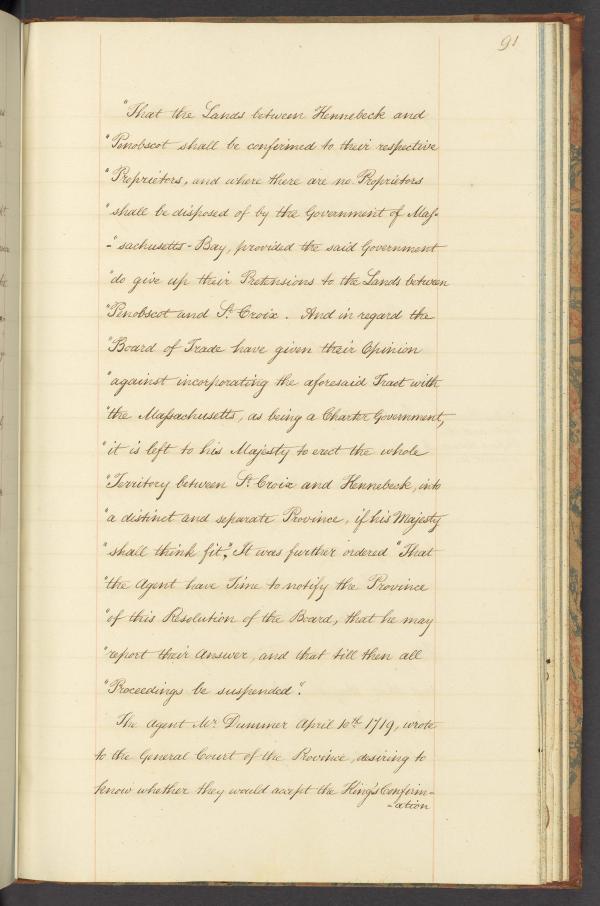 91
"That the Lands between Kennebeck and
"Penobscot shall be confirmed to their respective
"Proprietors, and where there are no Proprietors
"shall be disposed of by the Government of Mas-
-"sachusetts-Bay, provided the said Government
"do give up their Pretensions to the Lands between
"Penobscot and St. Croix. And in regard the
"Board of Trade have given their Opinion
"against incorporating the aforesaid Tract with
"the Massachusetts, as being a Charter Government,
"it is left to his Majesty to erect the whole
"Territory between St. Croix and Kennebeck, into
"a distinct and separate Province, if his Majesty
"shall think fit." It was further ordered "That
"the Agent have Time to notify the Province
"of this Resolution of the Board, that he may
"report their Answer, and that till then all
"Proceedings be suspended".
The Agent Mr. Dummer April 10th 1719, wrote
to the General Court of the Province, desiring to
know whether they would accept the King's Confirm-
-ation